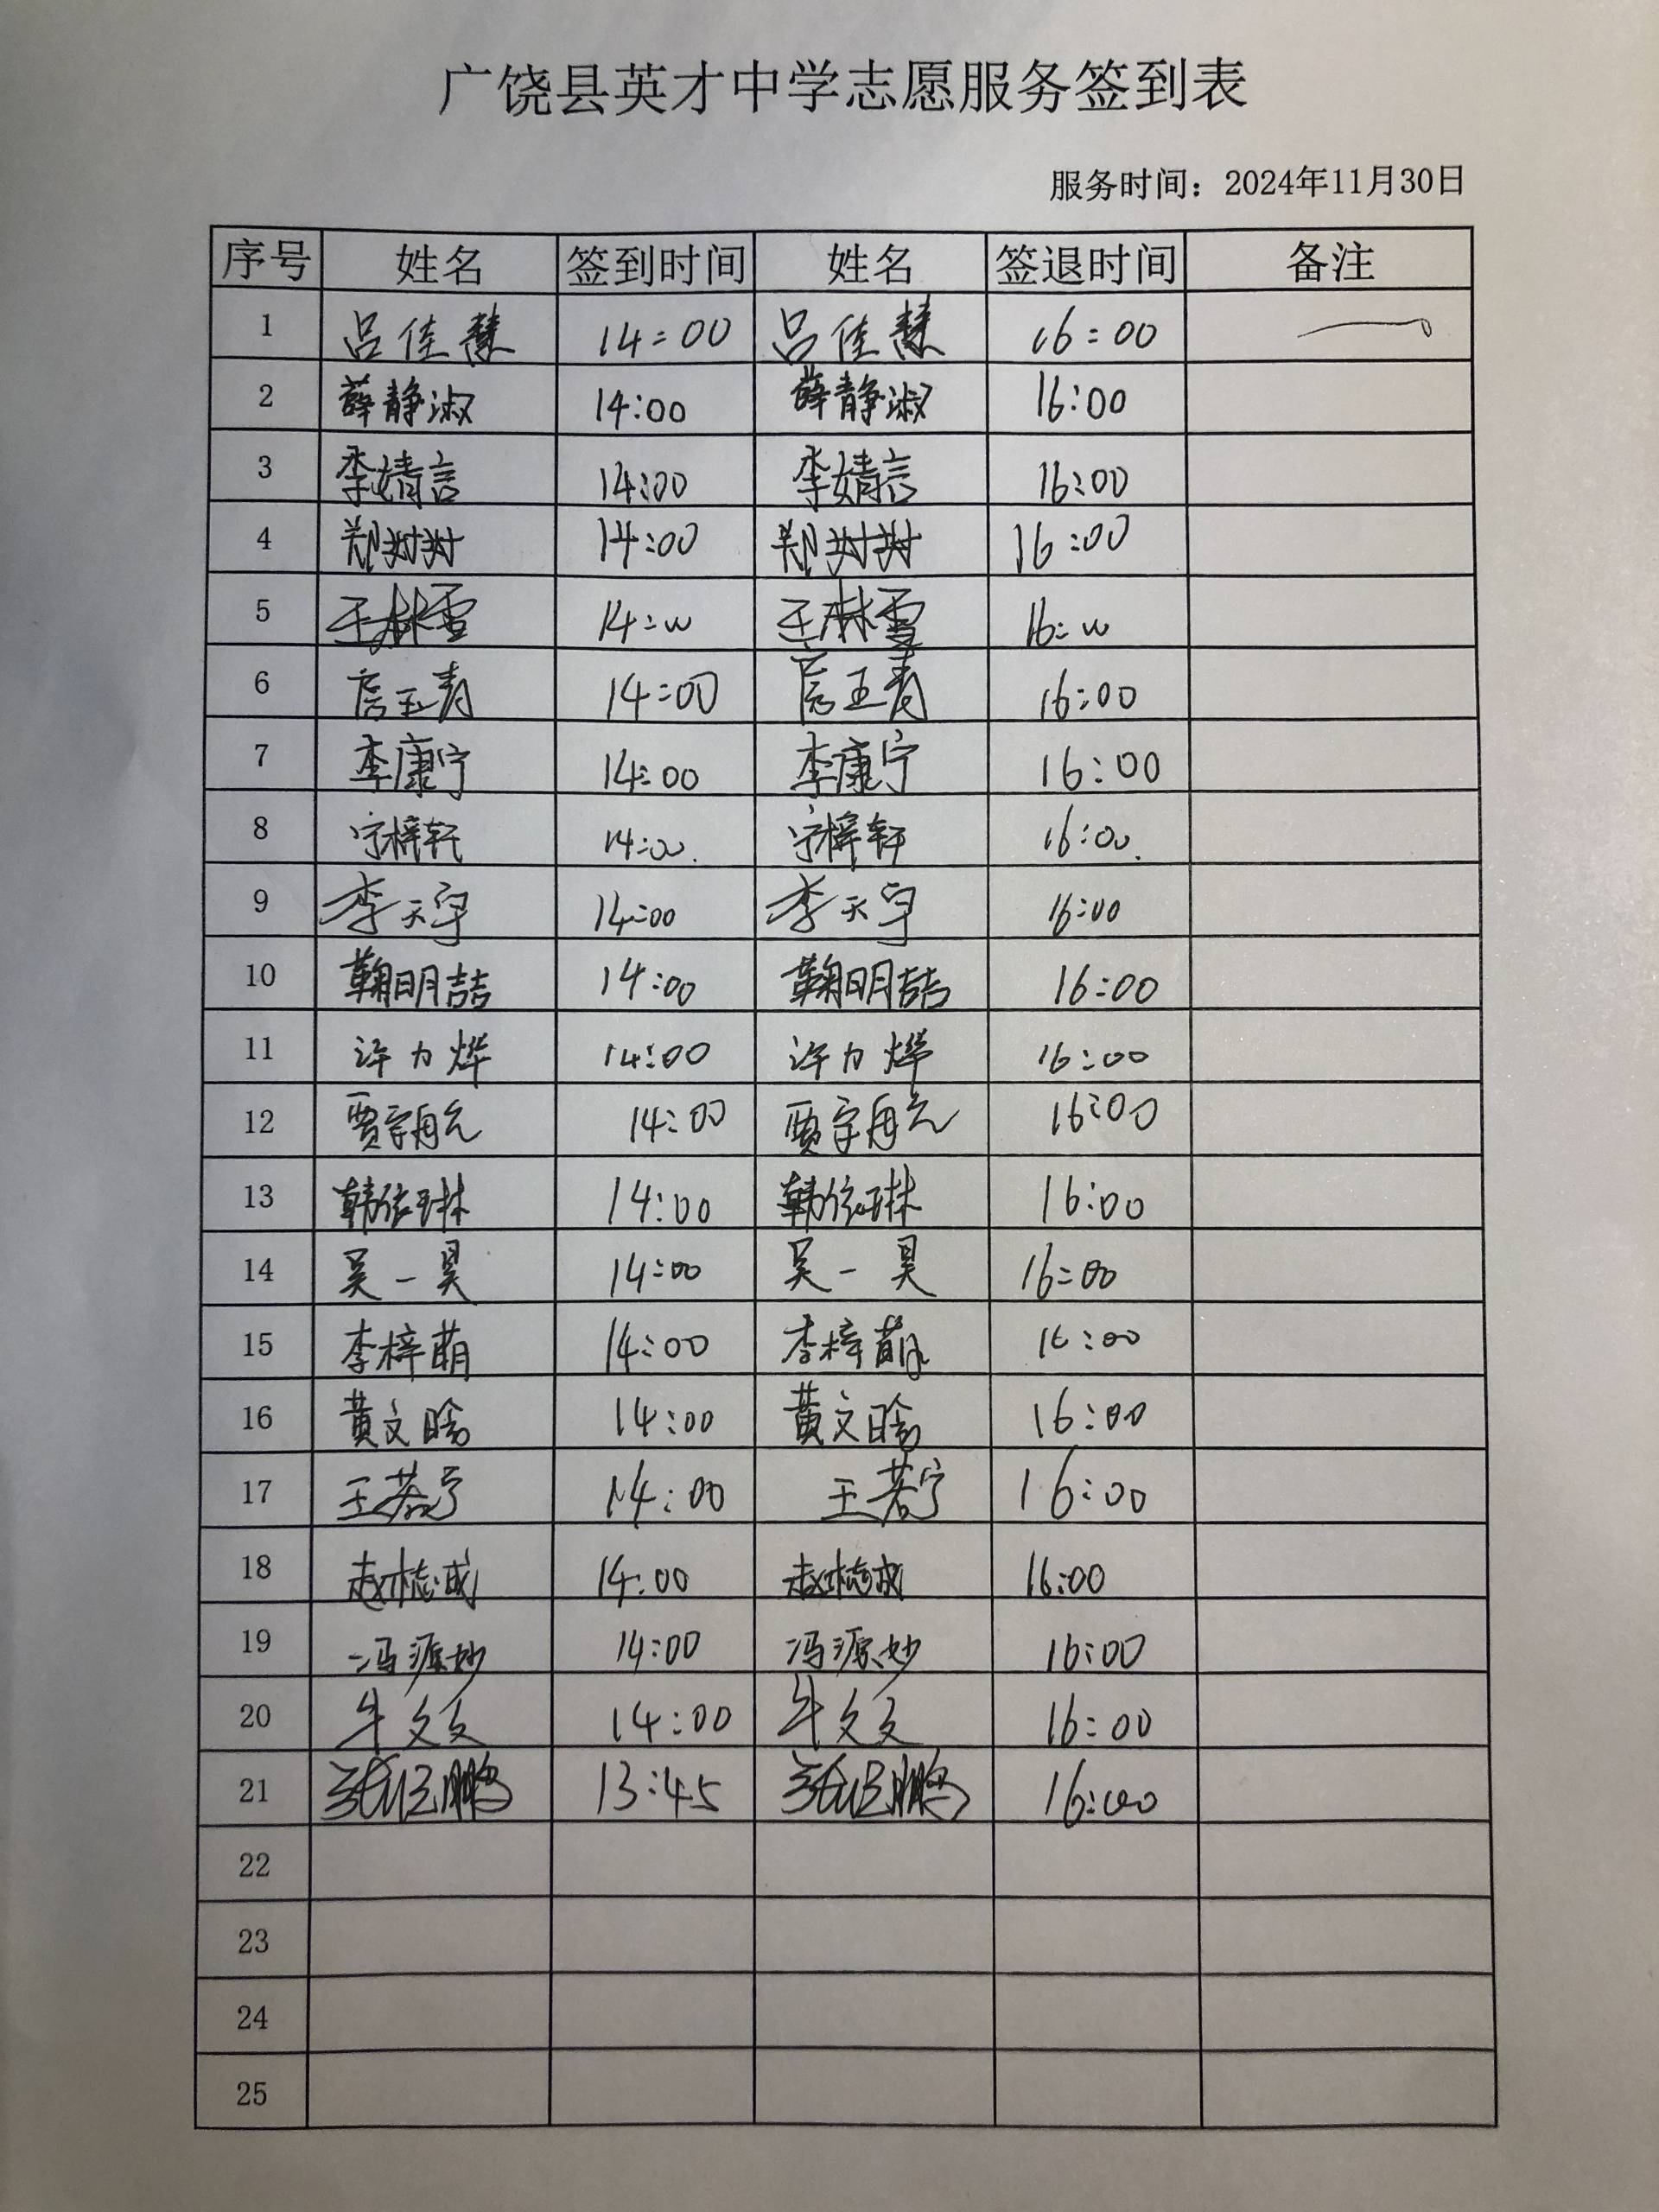 广饶县英才中学志愿服务签到表
服务时间：2024年11月30日
序号 姓名 签到时间 姓名 签退时间 备注
1 吕佳慧 14:00 吕佳慧 16:00
2 薛静淑 14:00 薛静淑 16:00
3 李婧言 14:00 李婧言 16:00
4 郑对对 14:00 郑对对 16:00
5 王琳雪 14:00 王琳雪 16:00
6 14:00 16:00
7 李康宁 14:00 李康宁 16:00
8 宁梓轩 14:00 宁梓轩 16:00
9 李天宇 14:00 李天宇 16:00
10 鞠明喆 14:00 鞠明喆 16:00
11 许力烨 14:00 许力烨 16:00
12 14:00 16:00
13 韩依琳 14:00 韩依琳 16:00
14 吴一昊 14:00 吴一昊 16:00
15 李梓萌 14:00 李梓萌 16:00
16 黄文晗 14:00 黄文晗 16:00
17 王若宁 14:00 王若宁 16:00
18 14:00 16:00
19 冯源妙 14:00 冯源妙 16:00
20 牛文文 14:00 牛文文 16:00
21 13:45 16:00
22
23
24
25